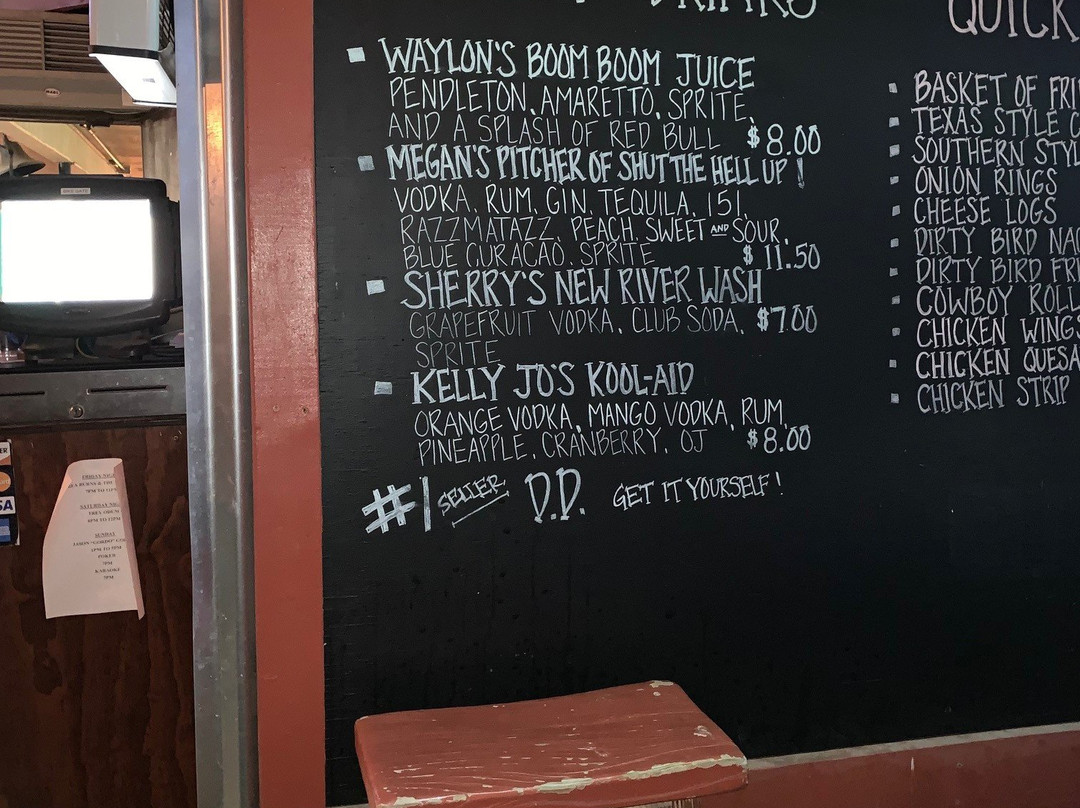 DRINKS
WAYLON'S BOOM BOOM JUICE
PENDLETON, AMARETTO, SPRITE,
AND A SPLASH OF RED BULL $8.00
MEGAN'S PITCHER OF SHUT THE HELL UP!
VODKA, RUM, GIN, TEQUILA, 151,
RAZZMATAZZ, PEACH, SWEET AND SOUR,
BLUE CURACAO, SPRITE $11.50
SHERRY'S NEW RIVER WASH
GRAPEFRUIT VODKA, CLUB SODA, $7.00
SPRITE
KELLY JO'S KOOL-AID
ORANGE VODKA, MANGO VODKA, RUM,
PINEAPPLE, CRANBERRY, OJ $8.00
#1 SELLER D.D. GET IT YOURSELF!
QUICK
BASKET OF FRI
TEXAS STYLE C
SOUTHERN STYL
ONION RINGS
CHEESE LOGS
DIRTY BIRD NAC
DIRTY BIRD FRI
COWBOY ROLL
CHICKEN WINGS
CHICKEN QUESA
CHICKEN STRIP
FRIDAY NIG
SATURDAY NIG
SUNDAY
POKER
KARAOKE
7PM